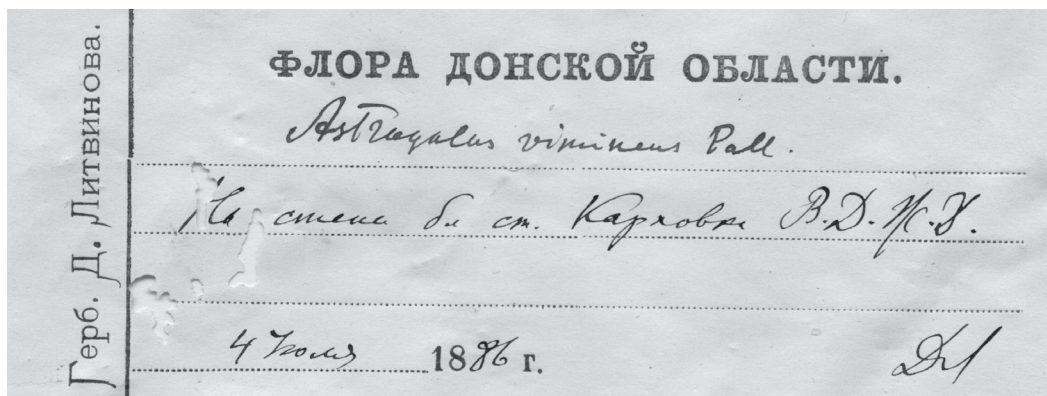 Герб. Д. Литвинова.
ФЛОРА ДОНСКОЙ ОБЛАСТИ.
Astragalus vimineus Pall.
На степи бл ст. Карповки В.Д.Ж.Д.
4 Июля 1886 г.
ДЛ